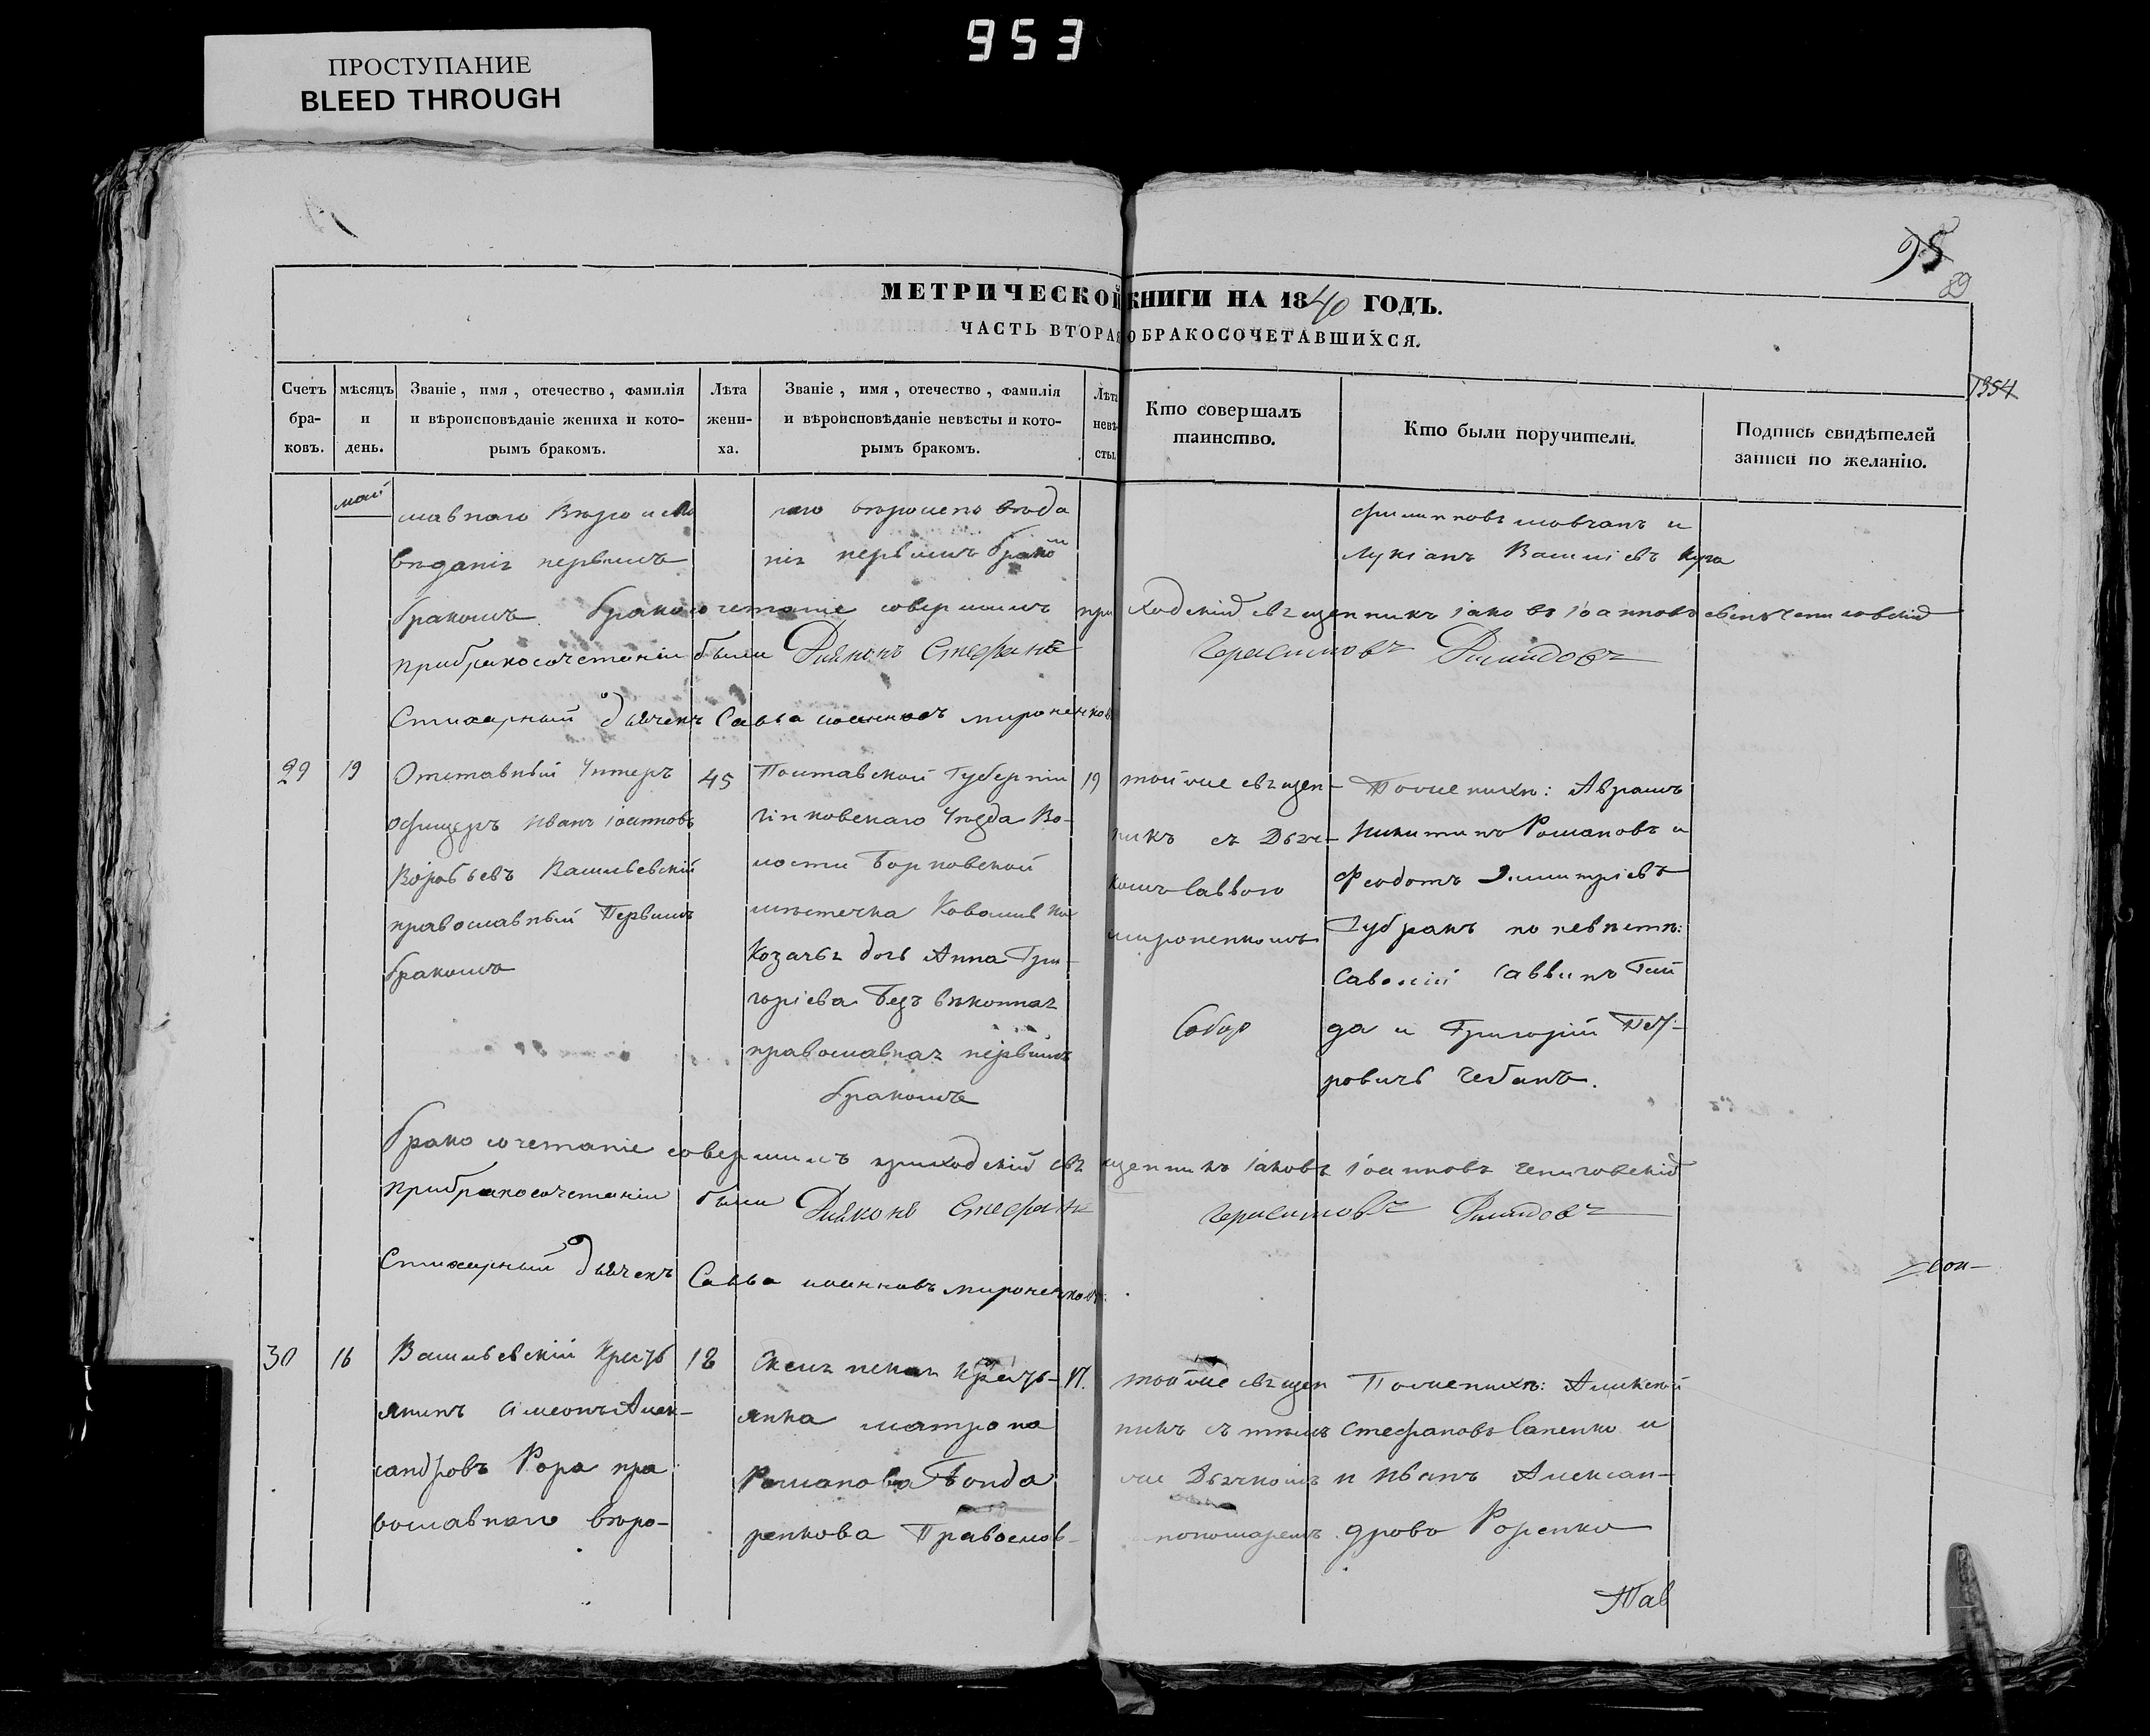 953
ПРОСТУПАНИЕ
BLEED THROUGH
95
89
МЕТРИЧЕСКОЙ КНИГИ НА 1840 ГОДЪ.
ЧАСТЬ ВТОРАЯ О БРАКОСОЧЕТАВШИХСЯ.
1954
Счетъ браковъ.
мѣсяцъ и день.
Званіе, имя, отечество, фамилія
и вѣроисповѣданіе жениха и кото-
рымъ бракомъ.
Лѣта
жени-
ха.
Званіе, имя, отечество, фамилія
и вѣроисповѣданіе невѣсты и кото-
рымъ бракомъ.
Лѣта
невѣ-
сты.
Кто совершалъ
таинство.
Кто были поручители.
Подпись свидѣтелей
записи по желанію.
май
славнаго Вѣроиспо
вѣданія первымъ
бракомъ
наго
нія первымъ бракомъ
и
Лукіанъ Василіевъ
Бракосочетаніе совершилъ приходскій священникъ Іаковъ Іоанновъ
прибракосочетаніи были Діяконъ Стефанъ Герасимовъ Демидовъ
Стихарный дьячекъ Савва иоанновъ мироненковъ
29
19
Отставный Унтеръ
офицеръ Иванъ Іоанновъ
Воробьевъ Васильевскій
православный Первымъ
бракомъ
45
Полтавской Губерніи
Зѣнковскаго Уѣзда Во-
лости Борковской
мѣстечка
Козачья дочь Анна Гри-
горіева
православная первымъ
бракомъ
19
тойже священ-
никъ съ Дьяч-
комъ Саввою
мироненкомъ
Собор
Поженихѣ: Аврамъ
Никитинъ Романовъ и
Феодотъ Димитріевъ
Губракъ по невѣстѣ:
Савелій Саввинъ Гай
да и Григорій Пет-
ровичъ Чебанъ.
Бракосочетаніе совершилъ приходскій священникъ Іаковъ Іоанновъ
прибракосочетаніи были Діяконъ Стефанъ Герасимовъ Демидовъ
Стихарный дьячекъ Савва иоанновъ мироненковъ
30
16
Васильевскій Кресть
янинъ Симеонъ Алек-
сандровъ Рора пра
вославнаго вѣро-
18
Кресть-
янка матрона
Романова Бонда
ренкова Православ-
17.
тойже священ
никъ съ тѣмъ
же Дьячкомъ и
пономаремъ
Поженихѣ: Алексей
Стефановъ Сапенко и
Иванъ Алексан-
дровъ Роренко